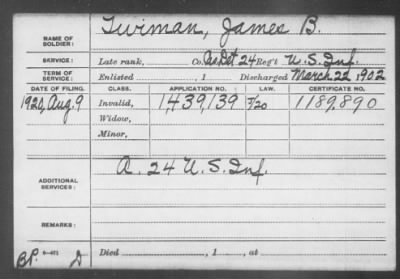 NAME OF SOLDIER: Twiman, James B.
SERVICE: Late rank, Co. A. Det 24 Reg't U. S. Inf.
TERM OF SERVICE: Enlisted , 1 Discharged March 22, 1902
DATE OF FILING. CLASS. APPLICATION NO. LAW. CERTIFICATE NO.
1920, Aug. 9 Invalid, 1,439,139 7/20 1,189,890
Widow,
Minor,
ADDITIONAL SERVICES: A. 24 U. S. Inf.
REMARKS:
Died , 1 , at